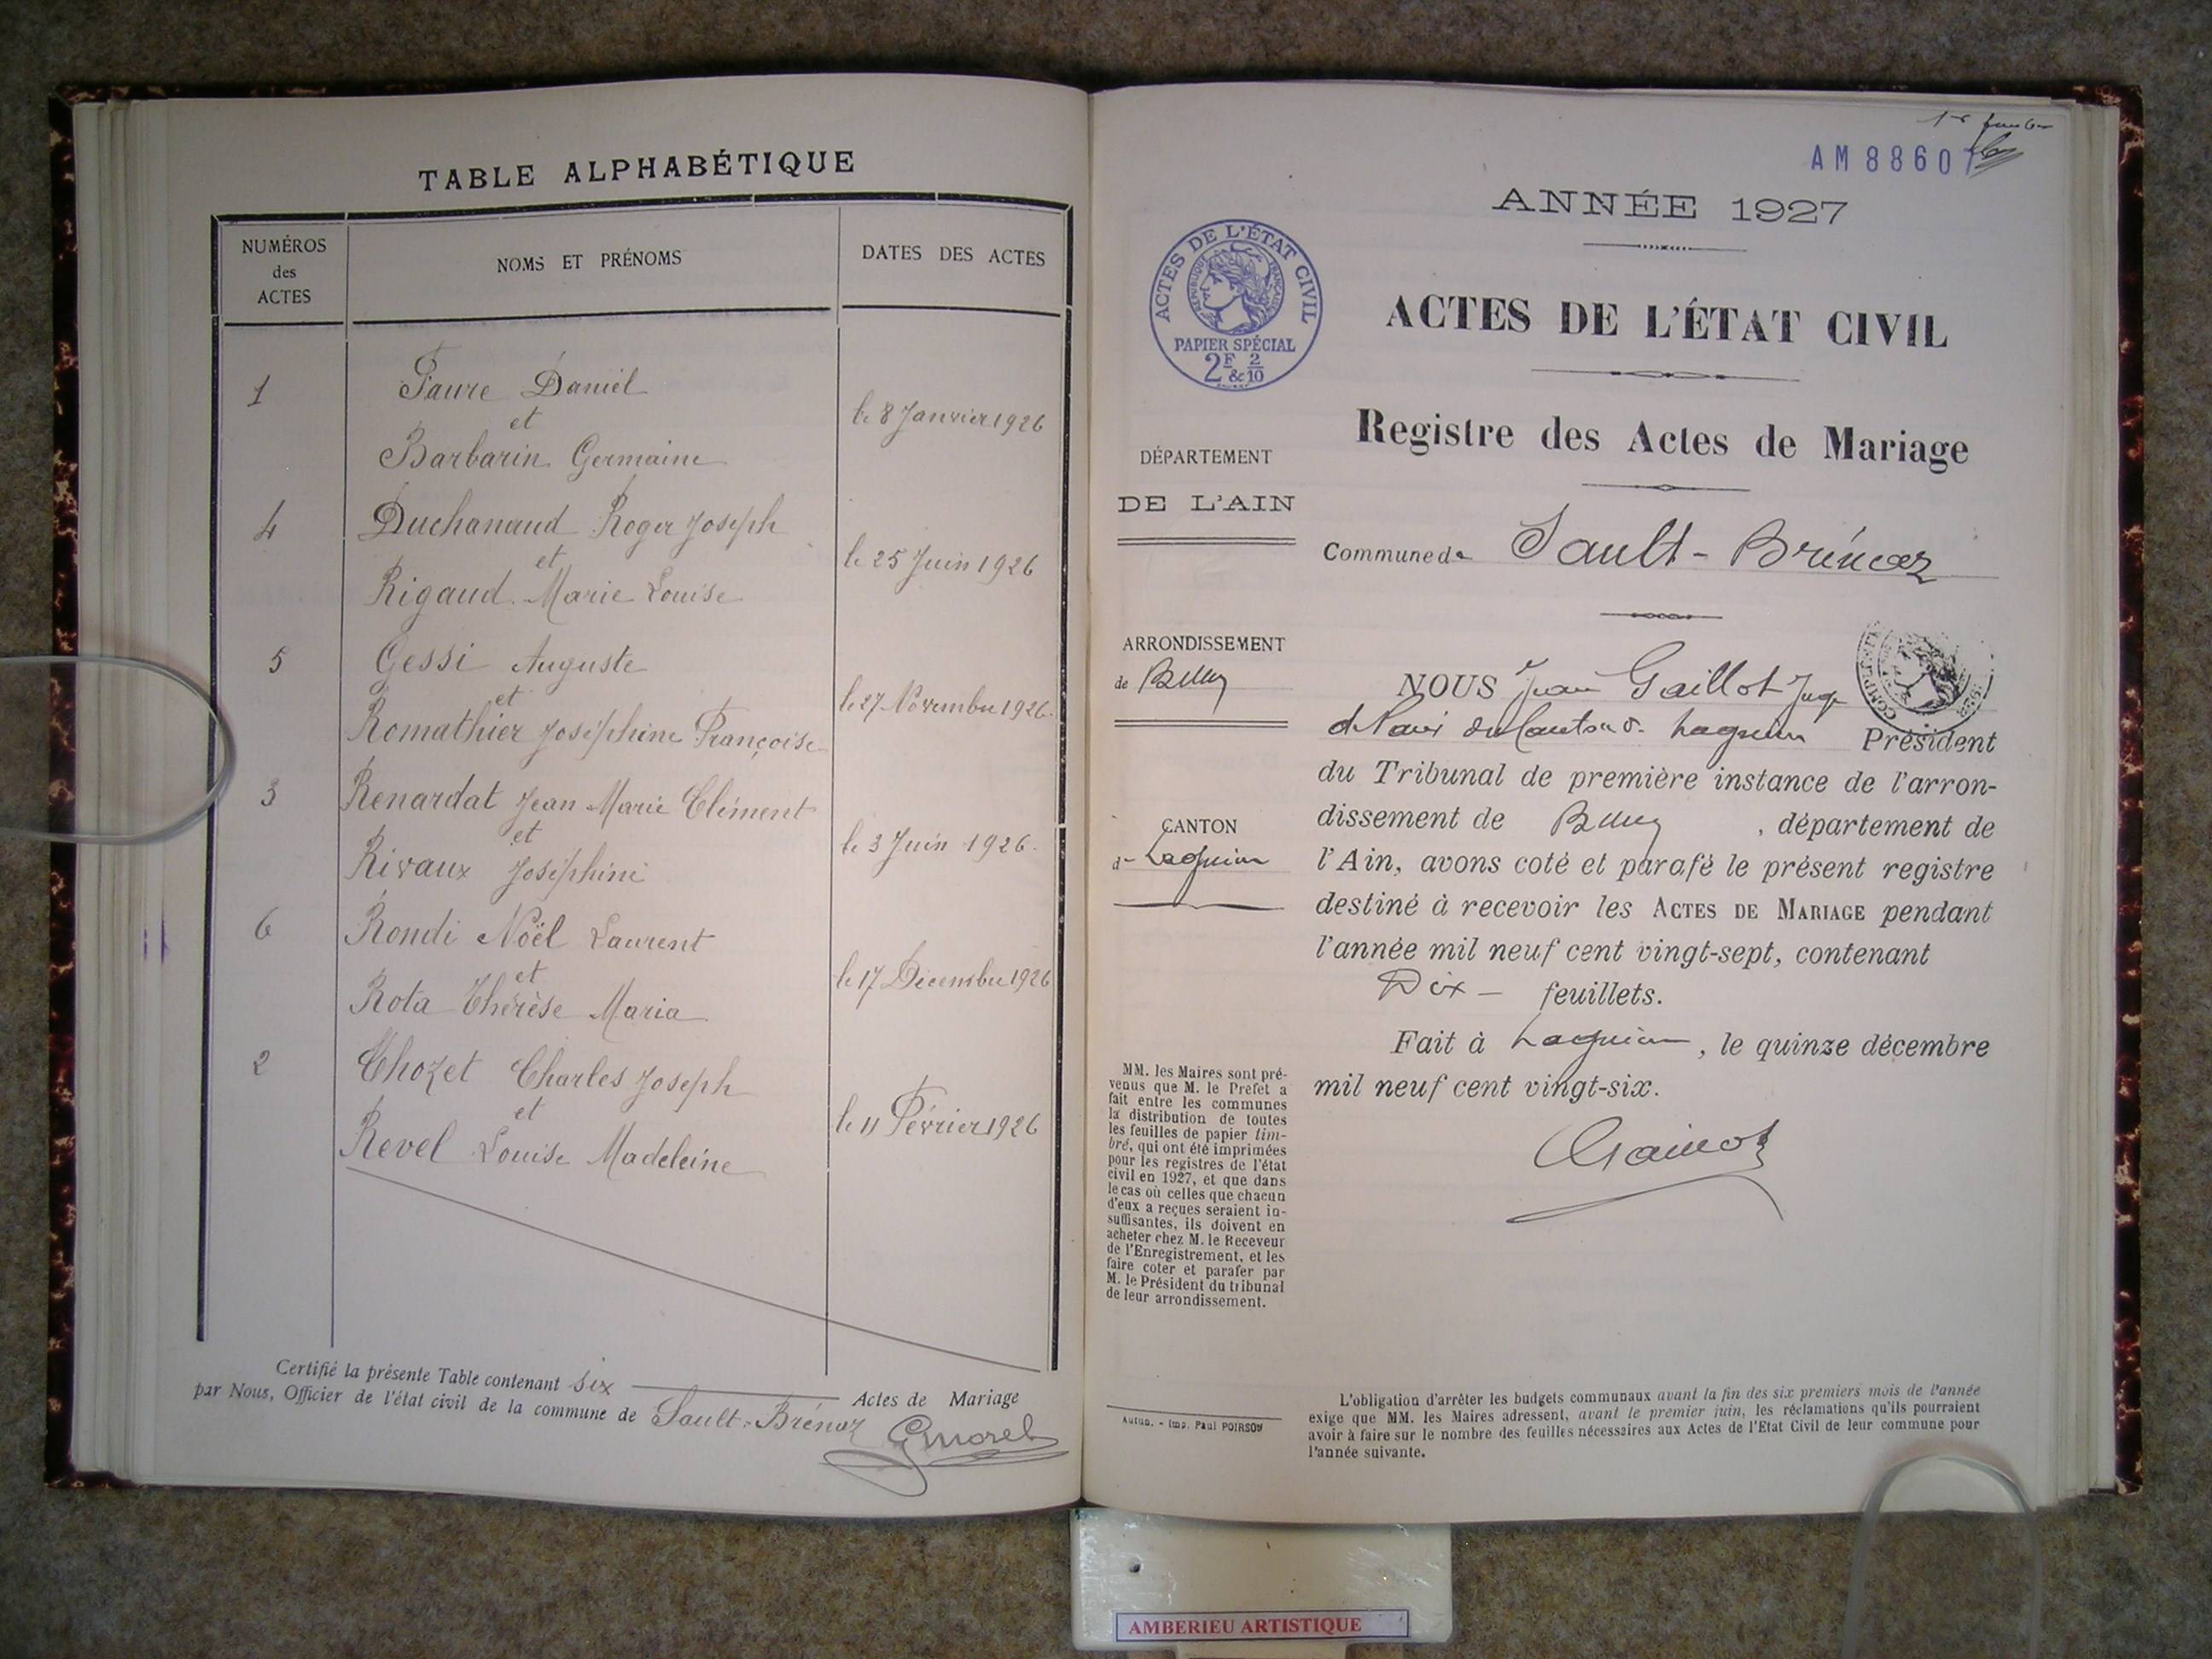 TABLE ALPHABÉTIQUE
NUMÉROS
des
ACTES
NOMS ET PRÉNOMS
DATES DES ACTES
1
Faure Daniel
et
Barbarin Germaine
le 8 Janvier 1926
4
Duchanaud Roger Joseph
et
Rigaud Marie Louise
le 25 Juin 1926
5
Gessi Auguste
et
Romathier Joséphine Françoise
le 27 Novembre 1926.
3
Renardat Jean Marie Clément
et
Rivaux Joséphine
le 3 Juin 1926.
6
Rondi Noël Laurent
et
Rota Thérèse Maria
le 17 Décembre 1926
2
Thozet Charles Joseph
et
Revel Louise Madeleine
le 11 Février 1926
Certifié la présente Table contenant six Actes de Mariage
par Nous, Officier de l'état civil de la commune de Sault-Brénaz
Gmorel
AM 88607
ANNÉE 1927
ACTES DE L'ÉTAT CIVIL
RÉPUBLIQUE FRANÇAISE
PAPIER SPÉCIAL
2F & 2/10
ACTES DE L'ÉTAT CIVIL
Registre des Actes de Mariage
DÉPARTEMENT
DE L'AIN
Commune de Sault-Brénaz
ARRONDISSEMENT
de Belley
CANTON
de Lagnieu
NOUS Jean Gaillot Juge
de Paix du Canton de Lagnieu Président
du Tribunal de première instance de l'arron-
dissement de Belley, département de
l'Ain, avons coté et parafé le présent registre
destiné à recevoir les ACTES DE MARIAGE pendant
l'année mil neuf cent vingt-sept, contenant
Dix - feuillets.
Fait à Lagnieu, le quinze décembre
mil neuf cent vingt-six.
MM. les Maires sont pré-
venus que M. le Préfet a
fait entre les communes
la distribution de toutes
les feuilles de papier tim-
bré, qui ont été imprimées
pour les registres de l'état
civil en 1927, et que dans
le cas où celles que chacun
d'eux a reçues seraient in-
suffisantes, ils doivent en
acheter chez M. le Receveur
de l'Enregistrement, et les
faire coter et parafer par
M. le Président du tribunal
de leur arrondissement.
Autun. - Imp. Paul POIRSON
L'obligation d'arrêter les budgets communaux avant la fin des six premiers mois de l'année
exige que MM. les Maires adressent, avant le premier juin, les réclamations qu'ils pourraient
avoir à faire sur le nombre des feuilles nécessaires aux Actes de l'Etat Civil de leur commune pour
l'année suivante.
AMBERIEU ARTISTIQUE